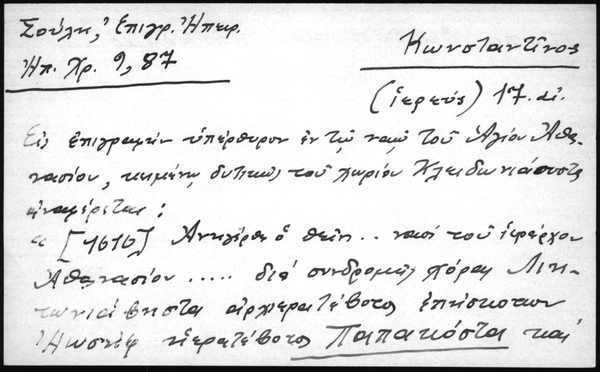 Σούλη, Ἐπιγρ. Ἠπειρ.
Ἠπ. Χρ. 9, 87
Κωνσταντῖνος
(ἱερεύς) 17. αἰ.
Εἰς ἐπιγραφὴν ὑπέρθυρον ἐν τῷ ναῷ τοῦ Ἁγίου Ἀθα-
νασίου, κειμένῳ δυτικῶς τοῦ χωρίου
ἀναφέρεται:
" [1616] Ἀνηγέρθη ὁ θεῖος .. ναοί τοῦ ἱεράρχου
Ἀθανασίου ..... διά συνδρομῆς χόρας
ἀρχιερατέβοτος
Ἠωσήφ ἱερατέβοτος Παπακόστα καί